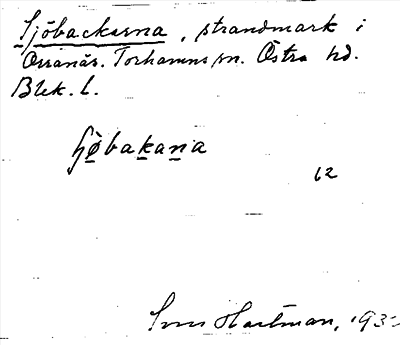 Sjöbackarna, strandmark i
Orranäs. Torhamns sn. Östra hd.
Blek. l.
hø̀bakana
62
Hartman, 193